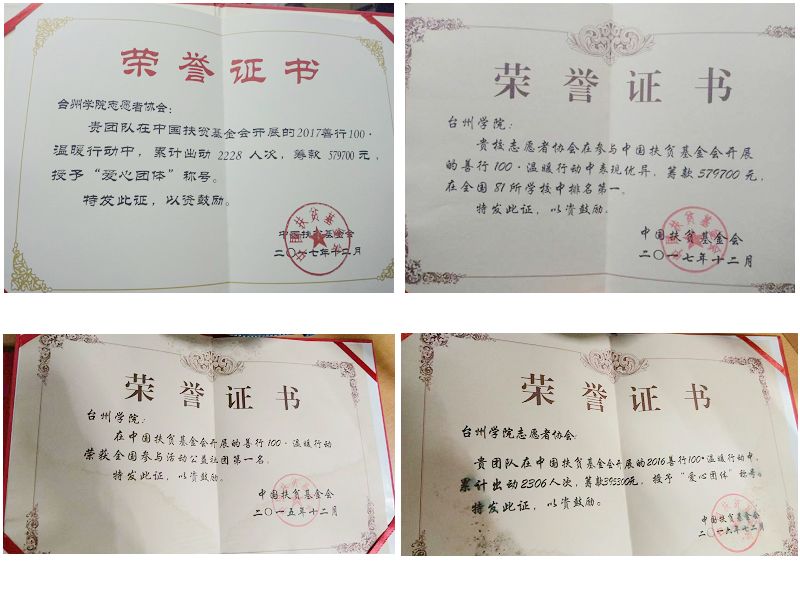 荣誉证书
台州学院志愿者协会：
贵团队在中国扶贫基金会开展的2017善行100·
温暖行动中，累计出动 2228 人次，筹款 579700 元，
授予“爱心团体”称号。
特发此证，以资鼓励。
中国扶贫基金会
二〇一七年十二月
荣誉证书
台州学院：
贵校志愿者协会在参与中国扶贫基金会开展
的善行100·温暖行动中表现优异，筹款579700元，
在全国81所学校中排名第一。
特发此证，以资鼓励。
中国扶贫基金会
二〇一七年十二月
荣誉证书
台州学院：
在中国扶贫基金会开展的善行100·温暖行动
荣获全国参与活动公益社团第一名。
特发此证，以资鼓励。
中国扶贫基金会
二〇一五年十二月
荣誉证书
台州学院志愿者协会：
贵团队在中国扶贫基金会开展的2016善行100·温暖行动中，
累计出动2306人次，筹款395300元，授予“爱心团体”称号。
特发此证，以资鼓励。
中国扶贫基金会
二〇一六年十二月